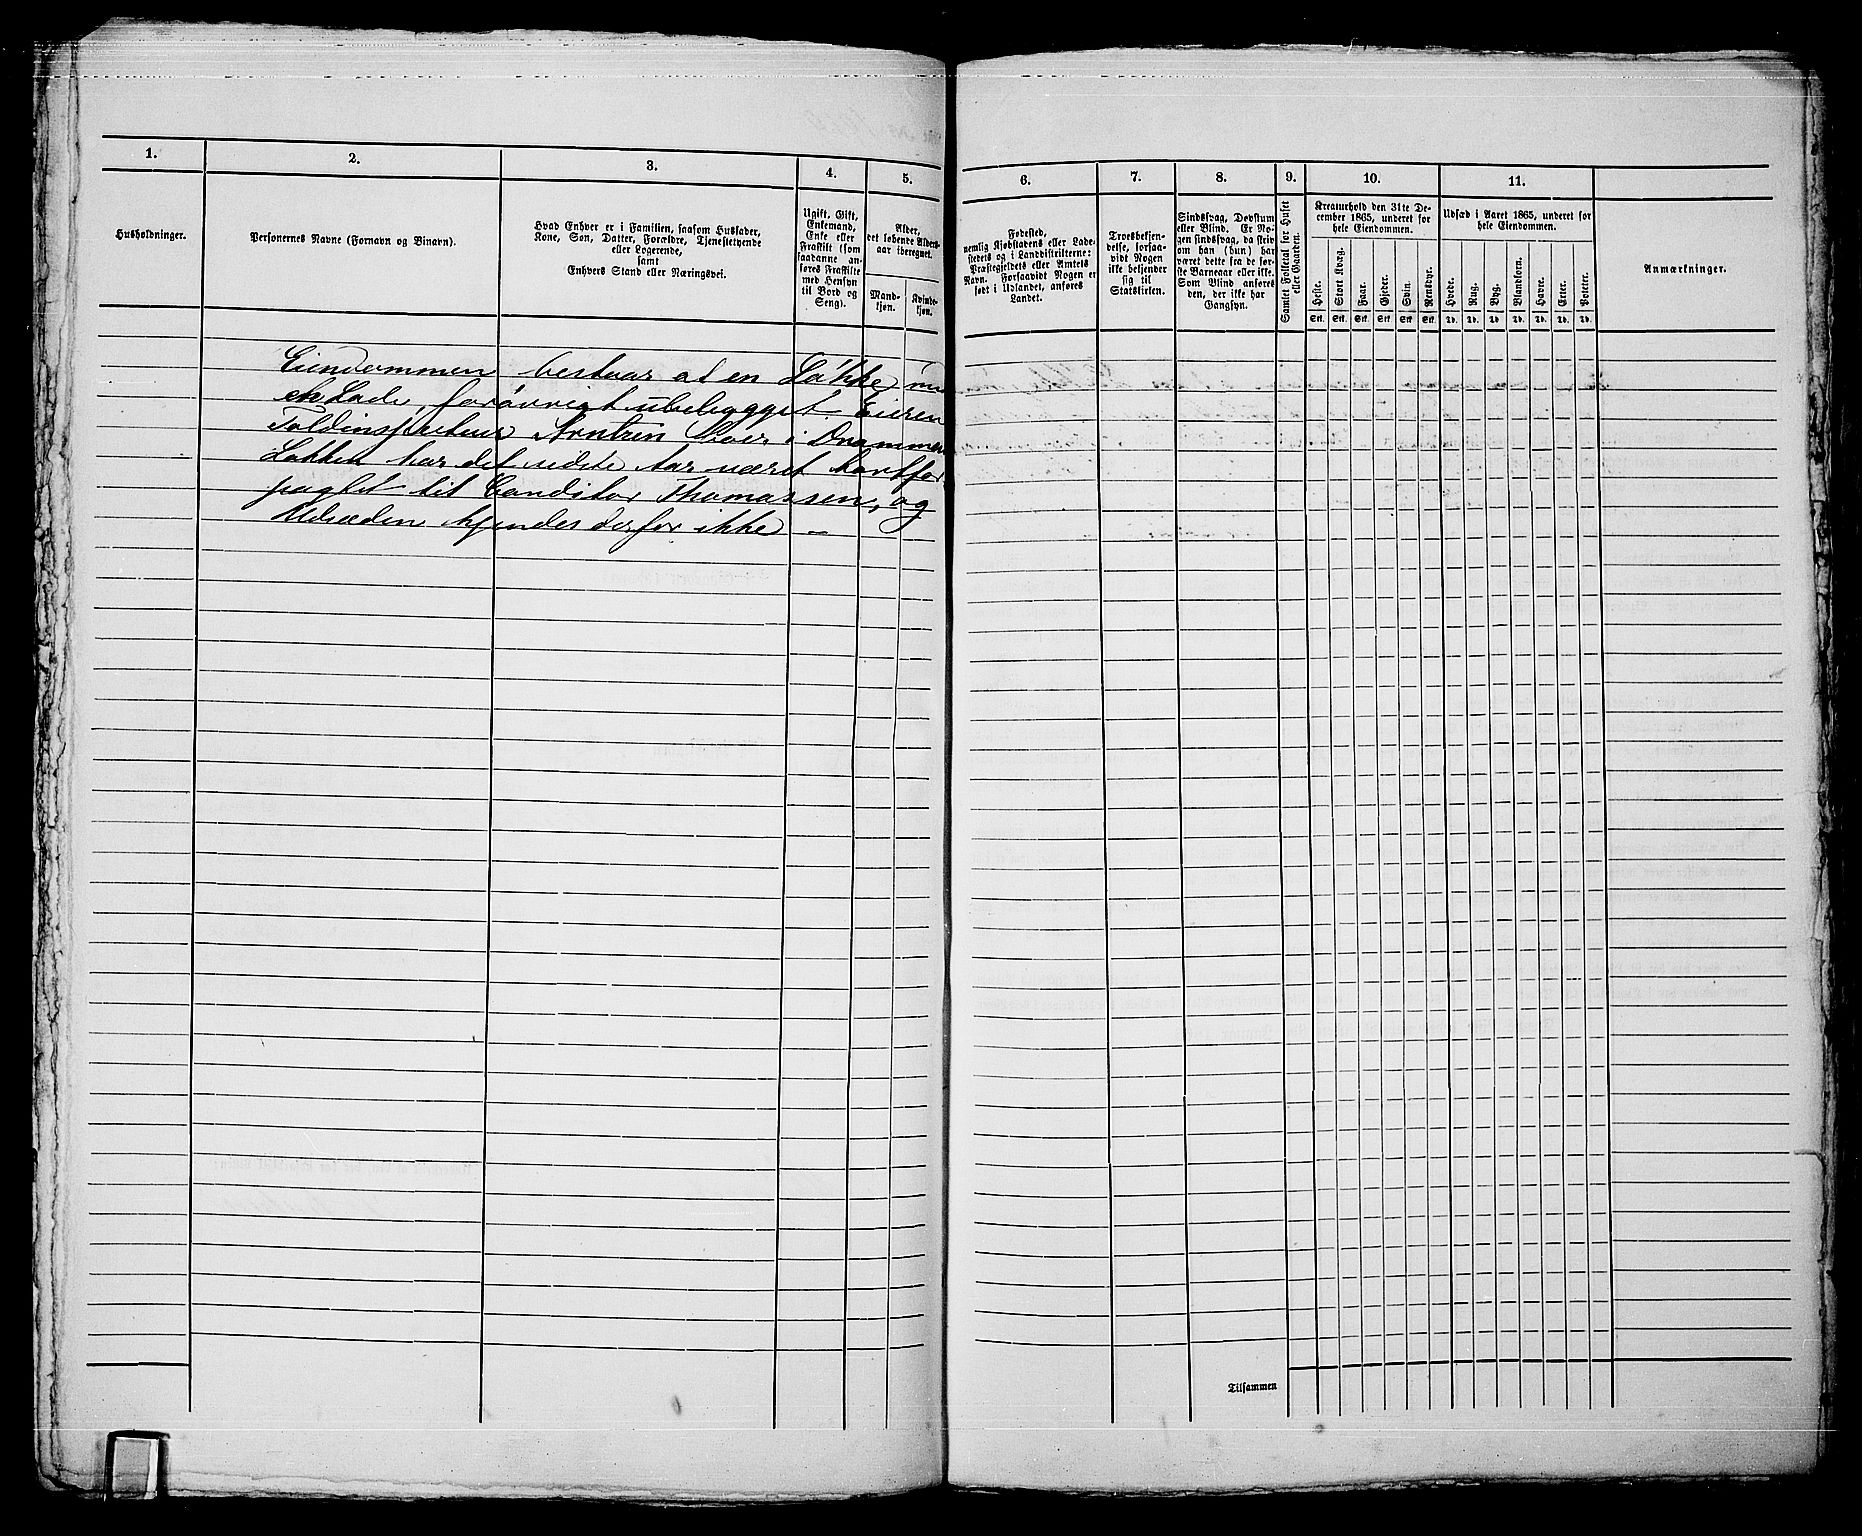 1.
2.
3.
4.
5.
6.
7.
8.
9.
10.
11.
Husholdninger.
Personernes Navne (Fornavn og Binavn).
Hvad Enhver er i Familien, saasom Husfader,
Kone, Søn, Datter, Forældre, Tjenestetyende
eller Logerende,
samt
Enhvers Stand eller Næringsvei.
Ugift, Gift,
Enkemand,
Enke eller
Fraskilt (som
saadanne an-
føres Fraskilte
med Hensyn
til Bord og
Seng).
Alder,
det løbende Alders-
aar iberegnet.
Mand-
kjøn.
Kvinde-
kjøn.
Fødested,
nemlig Kjøbstadens eller Lade-
stedets og i Landdistrikterne:
Præstegjeldets eller Amtets
Navn. Forsaavidt Nogen er
født i Udlandet, anføres
Landet.
Troesbekjen-
delse, forsaa-
vidt Nogen
ikke bekjender
sig til
Statskirken.
Sindssvag, Døvstum
eller Blind. Er No-
gen sindssvag, da skriv
om han (hun) har
været dette fra de før-
ste Barneaar eller ikke.
Som Blind anføres
den, der ikke har
Gangsyn.
Samlet Folketal for Huset
eller Gaarden.
Kreaturhold den 31te De-
cember 1865, underet for
hele Eiendommen.
Heste.
Stort Kvæg.
Faar.
Gjeder.
Svin.
Rensdyr.
Stk. Stk. Stk. Stk. Stk. Stk.
Udsæd i Aaret 1865, underet for
hele Eiendommen.
Hvede.
Rug.
Byg.
Blandkorn.
Havre.
Erter.
Poteter.
Td. Td. Td. Td. Td. Td. Td.
Anmærkninger.
Eiendommen bestaar af en Løkke,
en Lade, forøvrigt ubebygget. Eieren
Toldinspecteur Arntzen boer i Drammen
Løkken har det sidste Aar været bortfor
pagtet til Conditor Thomassen, og
Udsæden kjendes derfor ikke –
Tilsammen